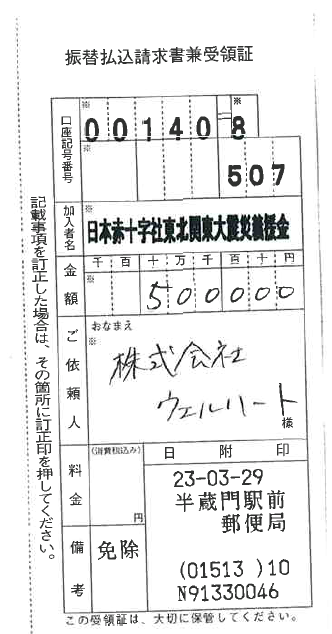 振替払込請求書兼受領証
口座記号番号
※
00140 8
※
507
加入者名
※
日本赤十字社東北関東大震災義援金
金額
千 百 十 万 千 百 十 円
※
500000
ご依頼人
おなまえ
※
株式会社
ウェルハート
様
料金
(消費税込み)
円
日 附 印
23-03-29
半蔵門駅前
郵便局
(01513 )10
N91330046
備考
免除
記載事項を訂正した場合は、その箇所に訂正印を押してください。
この受領証は、大切に保管してください。